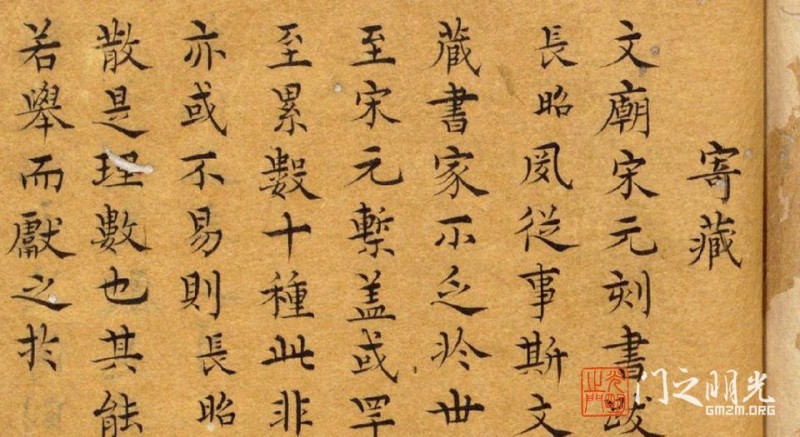 寄藏
文廟宋元刻書跋
長昭夙從事斯文
藏書家不乏於世
至宋元槧盖或罕
至累數十種此非
亦或不易則長昭
散是理數也其能
若舉而獻之於
光明之門
门之明光
GMZM.ORG